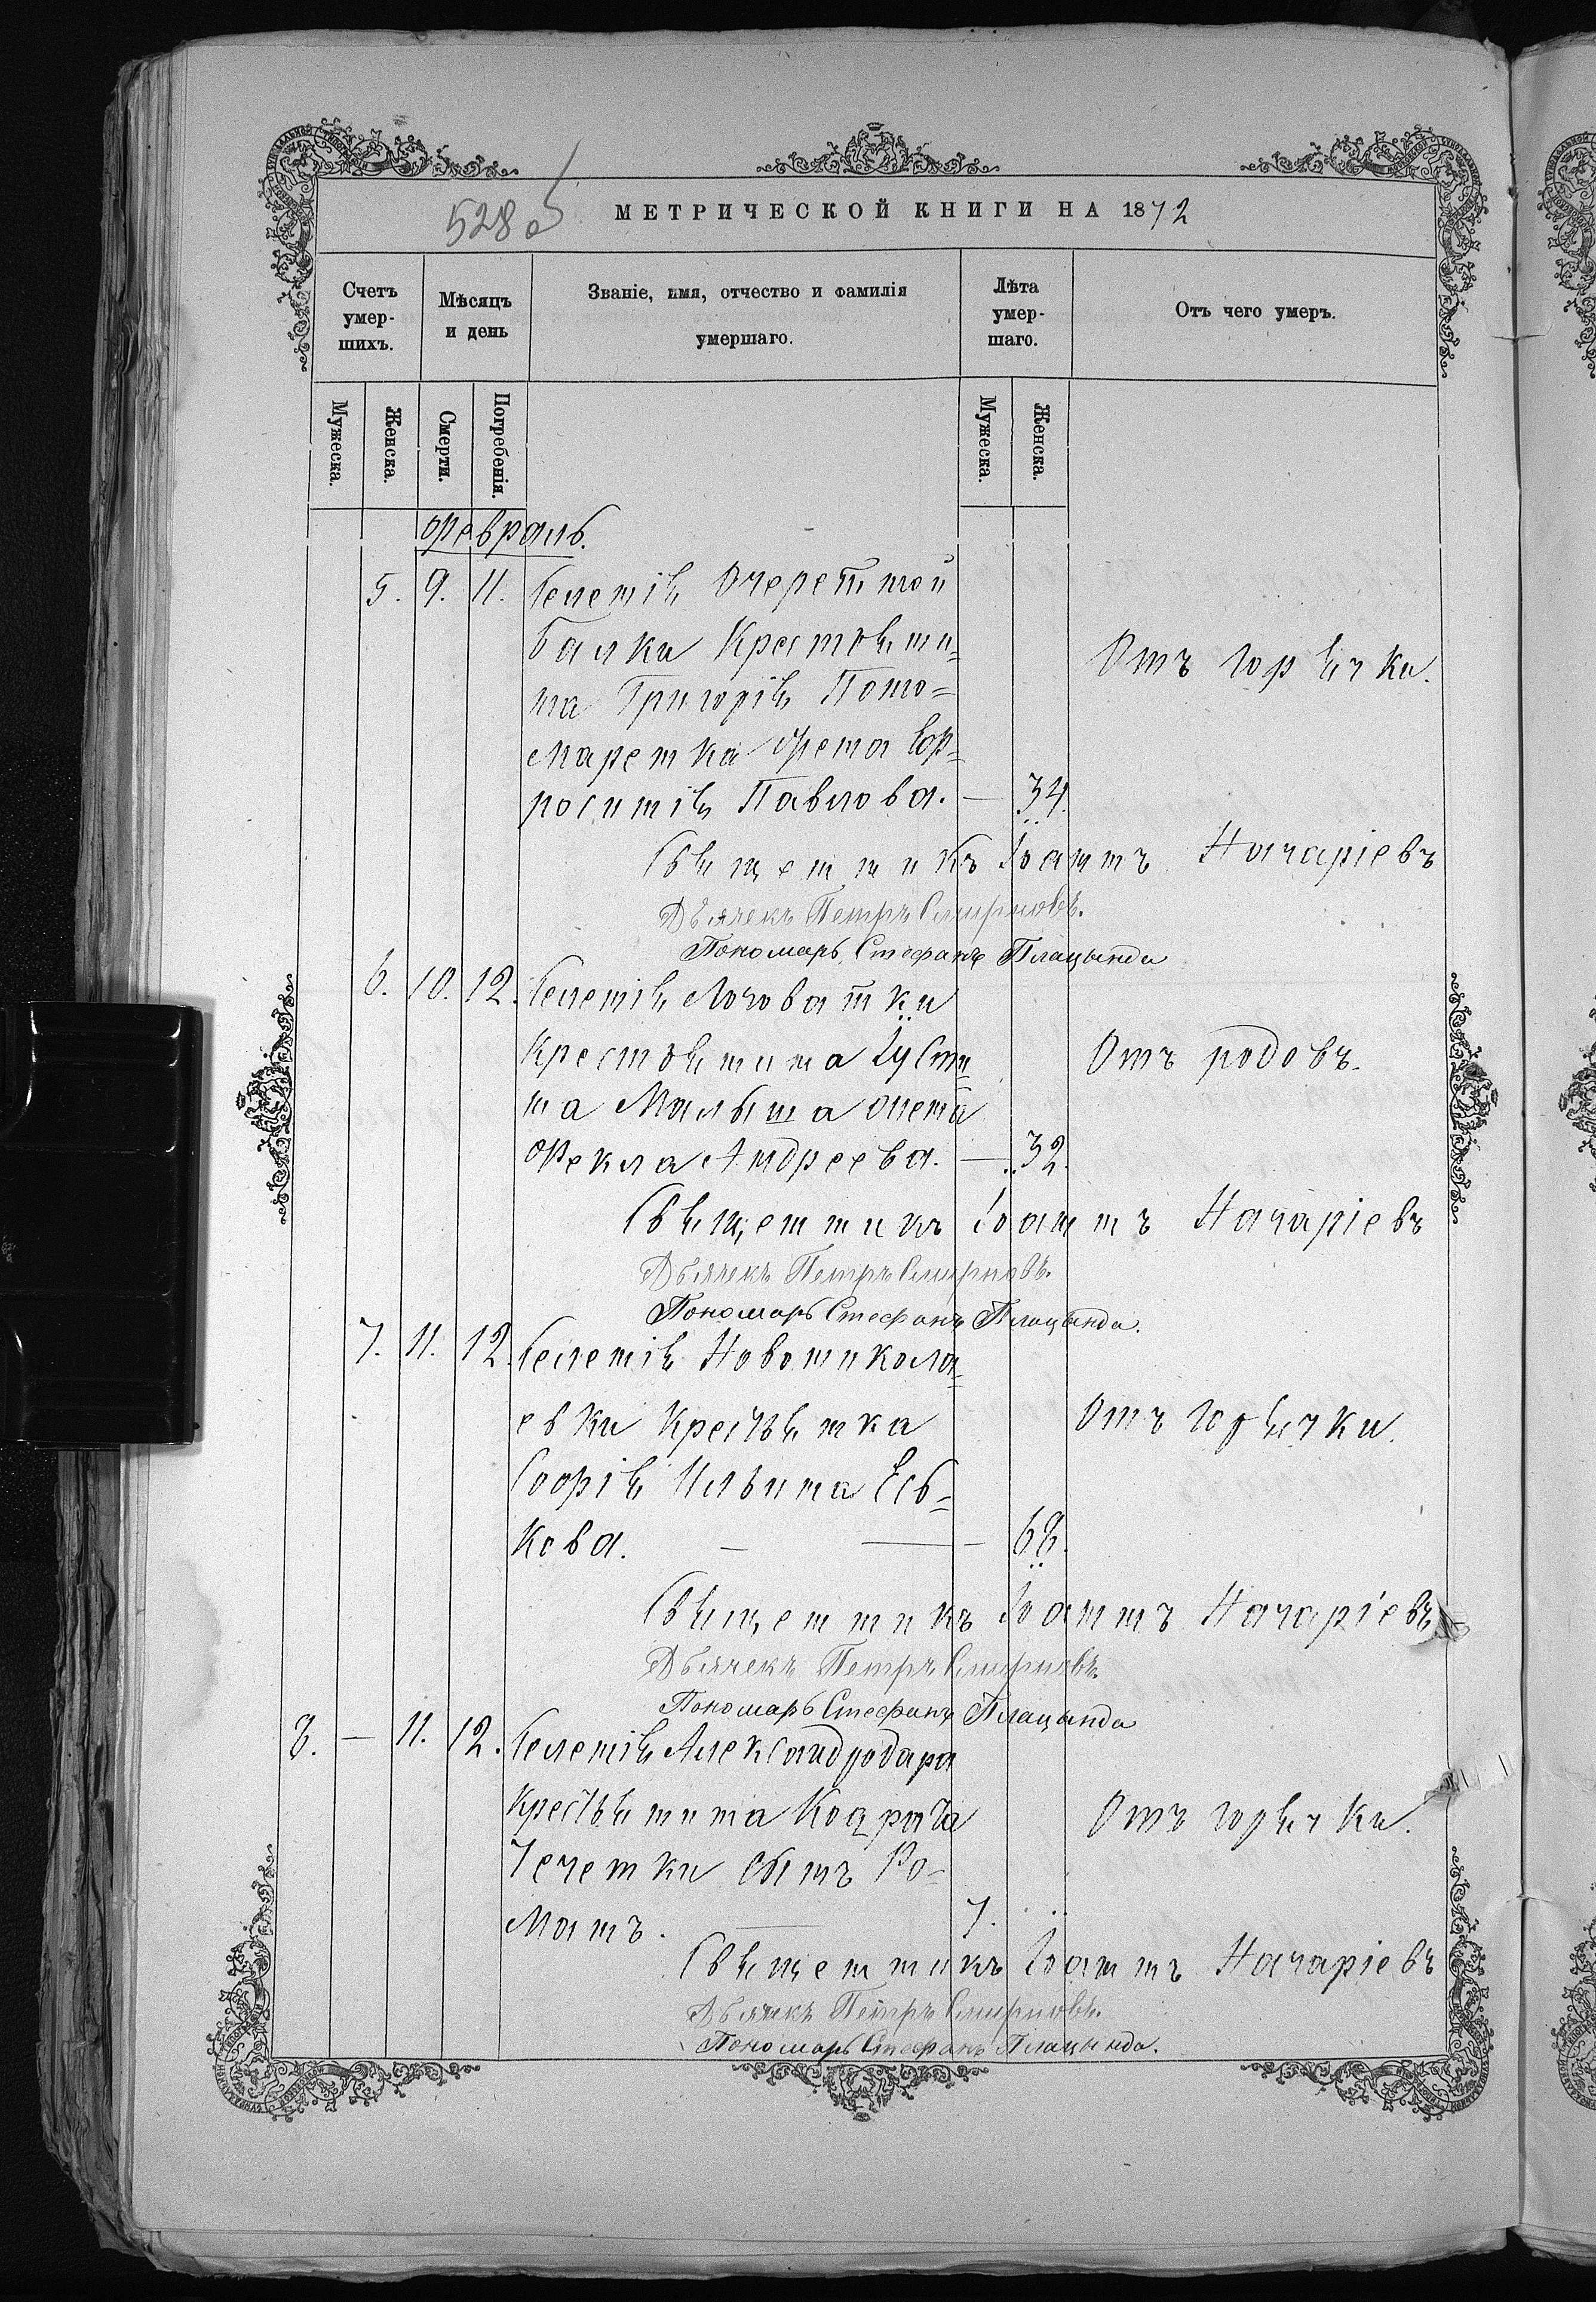 528 об
МЕТРИЧЕСКОЙ КНИГИ НА 1872
Счетъ умер-шихъ.
Мѣсяцъ и день
Званіе, имя, отчество и фамилія умершаго.
Лѣта умер-шаго.
Отъ чего умеръ.
Мужеска.
Женска.
Смерти.
Погребенія.
Мужеска.
Женска.
Февраль.
5. 9. 11. Селенія Очеретной
Балки Крестьяни-
на Григорія Поно-
маренка жена Еф-
росинія Павлова. — 34.
Отъ горячки.
Священникъ Іоаннъ Назаріевъ
Дьячекъ Петръ Смирновъ.
Пономарь Стефанъ Плацында
6. 10. 12. Селенія Лозоватки
Крестьянина Іусти-
на Малыша жена
Фекла Андреева. — 32.
Отъ родовъ.
Священникъ Іоаннъ Назаріевъ
Дьячекъ Петръ Смирновъ.
Пономарь Стефанъ Плацында.
7. 11. 12. Селенія Новоникола-
евки Крестьянка
Софія Ильина Есь-
кова. — — 68.
Отъ горячки.
Священникъ Іоаннъ Назаріевъ
Дьячекъ Петръ Смирновъ.
Пономарь Стефанъ Плацында
8. — 11. 12. Селенія Александродара
Крестьянина Кодрата
Чеченки сынъ Ро-
манъ. — 7.
Отъ горячки.
Священникъ Іоаннъ Назаріевъ
Дьячекъ Петръ Смирновъ.
Пономарь Стефанъ Плацында.